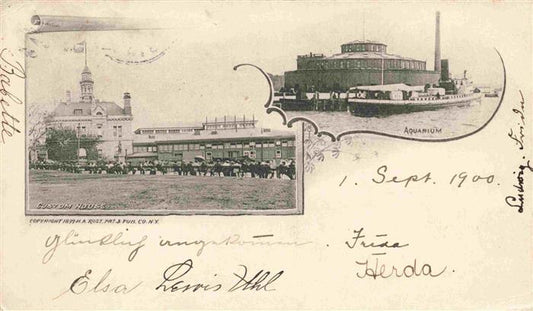 Babette
AQUARIUM
CUSTOM HOUSE
COPYRIGHT 1899 H.A. ROST. PRT. & PUB. CO. N.Y.
1. Sept. 1900.
Ludwig
glücklich angekommen. Frida
Herda.
Elsa Lewis Uhl